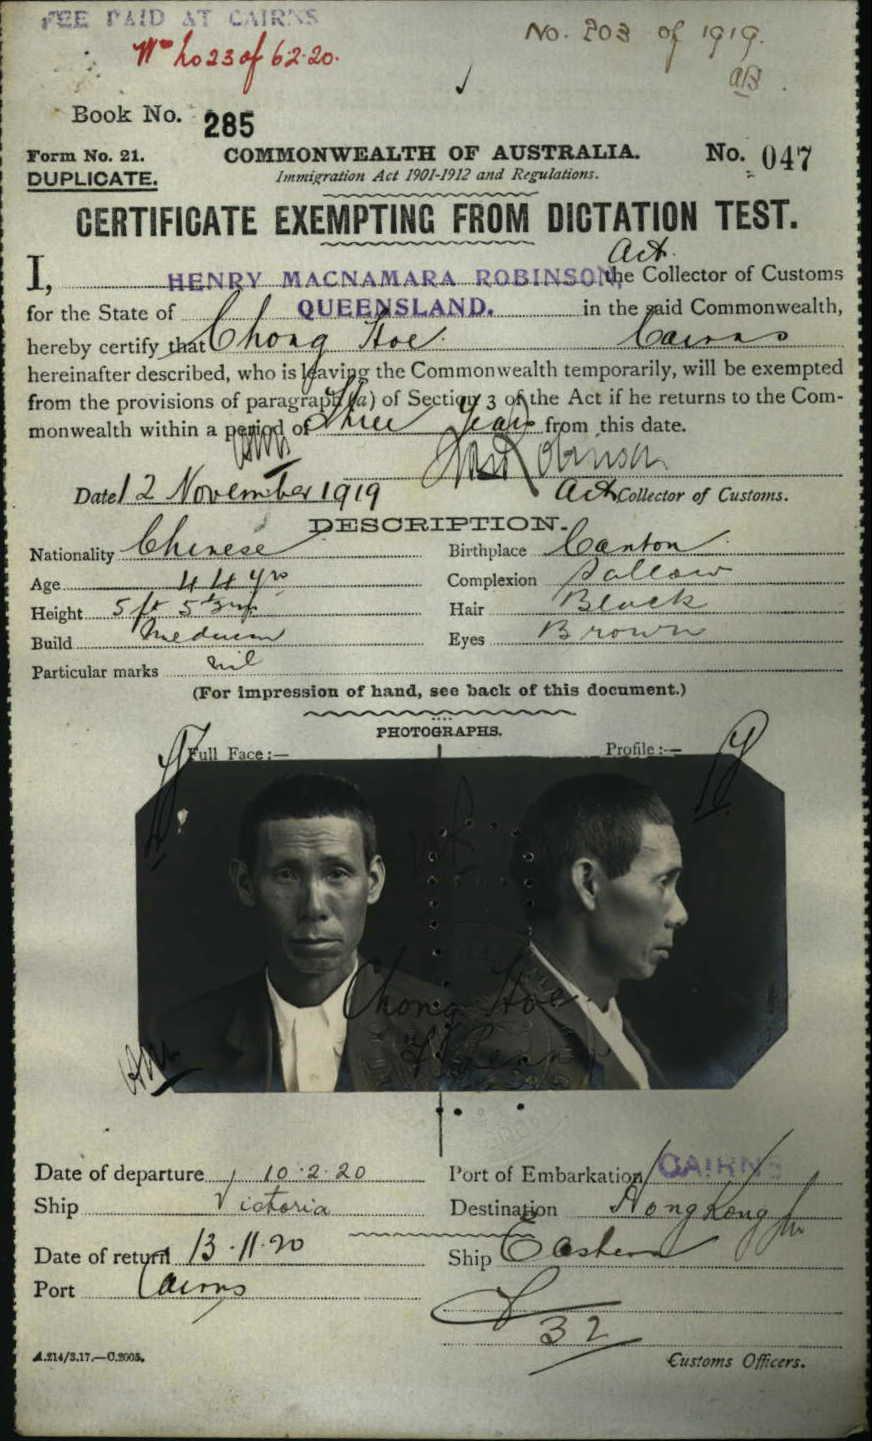 FEE PAID AT CAIRNS
No. 203 of 1919.
of 62.20.
Book No. 285
Form No. 21. COMMONWEALTH OF AUSTRALIA. No. 047
DUPLICATE. Immigration Act 1901-1912 and Regulations.
CERTIFICATE EXEMPTING FROM DICTATION TEST.
Act.
I, HENRY MACNAMARA ROBINSON, the Collector of Customs
for the State of QUEENSLAND. in the said Commonwealth,
hereby certify that Chong Hoe Cairns
hereinafter described, who is leaving the Commonwealth temporarily, will be exempted
from the provisions of paragraph (a) of Section 3 of the Act if he returns to the Com-
monwealth within a period of Three Years from this date.
Robinson
Date 12 November 1919 Act Collector of Customs.
DESCRIPTION.
Nationality Chinese Birthplace Canton
Age 44 yrs Complexion Sallow
Height 5 ft Hair Black
Build Medium Eyes Brown
Particular marks nil
(For impression of hand, see back of this document.)
PHOTOGRAPHS.
Full Face:— Profile:—
Chong Hoe
Date of departure 10.2.20 Port of Embarkation CAIRNS
Ship Victoria Destination Hong Kong
Date of return 13.11.20 Ship Eastern
Port Cairns
32
A.214/3.17.—C.2005. Customs Officers.